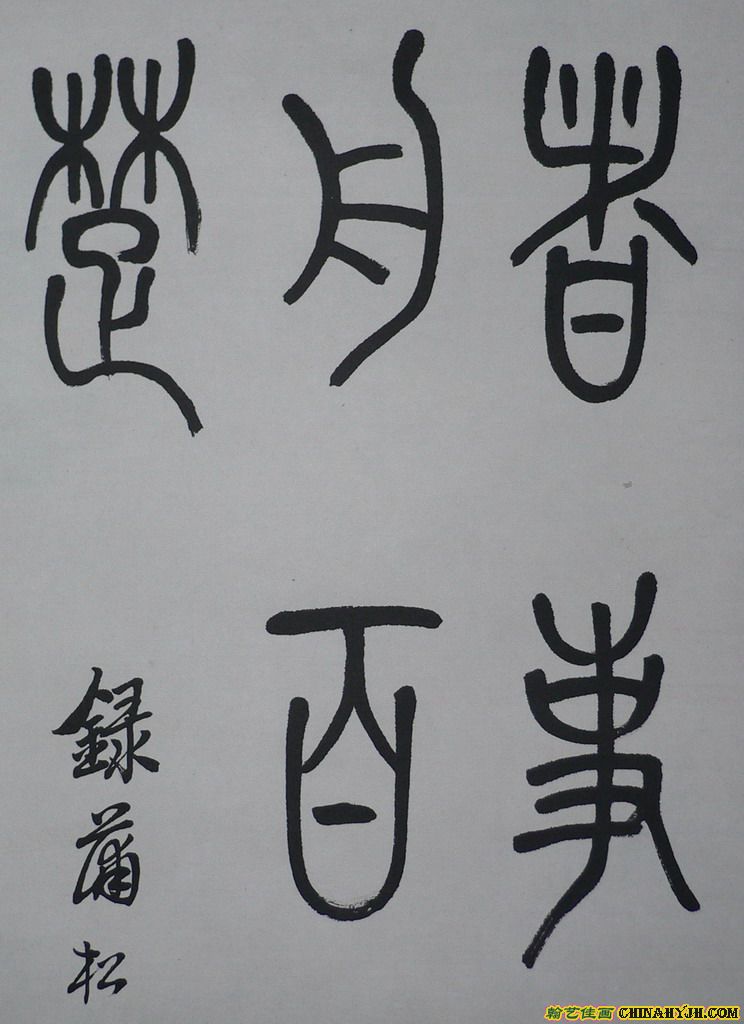 者事
舟百
楚
録蒲松
翰艺佳画 CHINAHYJH.COM